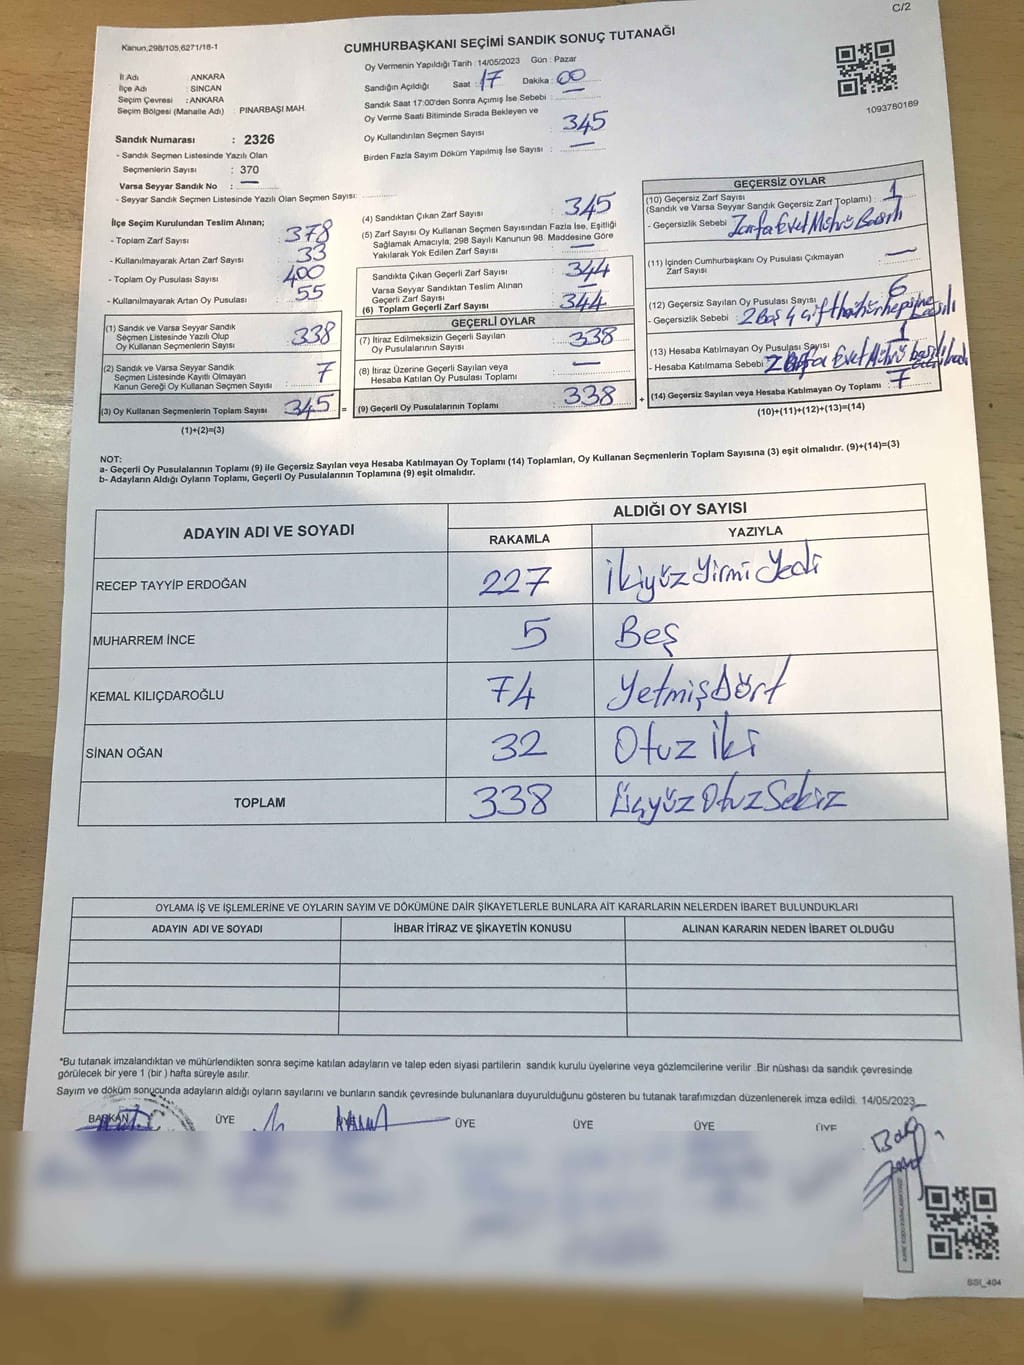 C/2
Kanun,298/105,6271/18-1
CUMHURBAŞKANI SEÇİMİ SANDIK SONUÇ TUTANAĞI
İl Adı ANKARA
İlçe Adı : SİNCAN
Seçim Çevresi : ANKARA
Seçim Bölgesi (Mahalle Adı) : PINARBAŞI MAH.
Sandık Numarası : 2326
- Sandık Seçmen Listesinde Yazılı Olan
Seçmenlerin Sayısı : 370
Varsa Seyyar Sandık No : —
- Seyyar Sandık Seçmen Listesinde Yazılı Olan Seçmen Sayısı:
Oy Vermenin Yapıldığı Tarih : 14/05/2023 Gün : Pazar
Sandığın Açıldığı Saat : 17 Dakika : 00
Sandık Saat 17:00'den Sonra Açımış İse Sebebi : —
Oy Verme Saati Bitiminde Sırada Bekleyen ve
Oy Kullandırılan Seçmen Sayısı 345
Birden Fazla Sayım Döküm Yapılmış İse Sayısı : —
1093780189
İlçe Seçim Kurulundan Teslim Alınan;
- Toplam Zarf Sayısı : 378
- Kullanılmayarak Artan Zarf Sayısı : 33
- Toplam Oy Pusulası Sayısı : 400
- Kullanılmayarak Artan Oy Pusulası : 55
(1) Sandık ve Varsa Seyyar Sandık
Seçmen Listesinde Yazılı Olup
Oy Kullanan Seçmenlerin Sayısı : 338
(2) Sandık ve Varsa Seyyar Sandık
Seçmen Listesinde Kayıtlı Olmayan
Kanun Gereği Oy Kullanan Seçmen Sayısı : 7
(3) Oy Kullanan Seçmenlerin Toplam Sayısı : 345 =
(1)+(2)=(3)
(4) Sandıktan Çıkan Zarf Sayısı : 345
(5) Zarf Sayısı Oy Kullanan Seçmen Sayısından Fazla İse, Eşitliği
Sağlamak Amacıyla, 298 Sayılı Kanunun 98. Maddesine Göre
Yakılarak Yok Edilen Zarf Sayısı : —
Sandıkta Çıkan Geçerli Zarf Sayısı : 344
Varsa Seyyar Sandıktan Teslim Alınan
Geçerli Zarf Sayısı : —
(6) Toplam Geçerli Zarf Sayısı : 344
GEÇERLİ OYLAR
(7) İtiraz Edilmeksizin Geçerli Sayılan
Oy Pusulalarının Sayısı : 338
(8) İtiraz Üzerine Geçerli Sayılan veya
Hesaba Katılan Oy Pusulası Toplamı : —
(9) Geçerli Oy Pusulalarının Toplamı : 338 +
GEÇERSİZ OYLAR
(10) Geçersiz Zarf Sayısı
(Sandık ve Varsa Seyyar Sandık Geçersiz Zarf Toplamı) : 1
- Geçersizlik Sebebi : Zarfa Evet Mührü Basılı
(11) İçinden Cumhurbaşkanı Oy Pusulası Çıkmayan
Zarf Sayısı : —
(12) Geçersiz Sayılan Oy Pusulası Sayısı : 6
- Geçersizlik Sebebi : 2 Boş 4 çift
(13) Hesaba Katılmayan Oy Pusulası Sayısı : 1
- Hesaba Katılmama Sebebi : Evet Mührü
(14) Geçersiz Sayılan veya Hesaba Katılmayan Oy Toplamı : 7
(10)+(11)+(12)+(13)=(14)
NOT:
a- Geçerli Oy Pusulalarının Toplamı (9) ile Geçersiz Sayılan veya Hesaba Katılmayan Oy Toplamı (14) Toplamları, Oy Kullanan Seçmenlerin Toplam Sayısına (3) eşit olmalıdır. (9)+(14)=(3)
b- Adayların Aldığı Oyların Toplamı, Geçerli Oy Pusulalarının Toplamına (9) eşit olmalıdır.
ADAYIN ADI VE SOYADI ALDIĞI OY SAYISI
RAKAMLA YAZIYLA
RECEP TAYYİP ERDOĞAN 227 İkiyüz Yirmi Yedi
MUHARREM İNCE 5 Beş
KEMAL KILIÇDAROĞLU 74 Yetmiş Dört
SİNAN OĞAN 32 Otuz İki
TOPLAM 338 Üçyüz Otuz Sekiz
OYLAMA İŞ VE İŞLEMLERİNE VE OYLARIN SAYIM VE DÖKÜMÜNE DAİR ŞİKAYETLERLE BUNLARA AİT KARARLARIN NELERDEN İBARET BULUNDUKLARI
ADAYIN ADI VE SOYADI İHBAR İTİRAZ VE ŞİKAYETİN KONUSU ALINAN KARARIN NEDEN İBARET OLDUĞU
*Bu tutanak imzalandıktan ve mühürlendikten sonra seçime katılan adayların ve talep eden siyasi partilerin sandık kurulu üyelerine veya gözlemcilerine verilir Bir nüshası da sandık çevresinde
görülecek bir yere 1 (bir ) hafta süreyle asılır.
Sayım ve döküm sonucunda adayların aldığı oyların sayılarını ve bunların sandık çevresinde bulunanlara duyurulduğunu gösteren bu tutanak tarafımızdan düzenlenerek imza edildi. 14/05/2023
BAŞKAN ÜYE ÜYE ÜYE ÜYE ÜYE
SSI_404